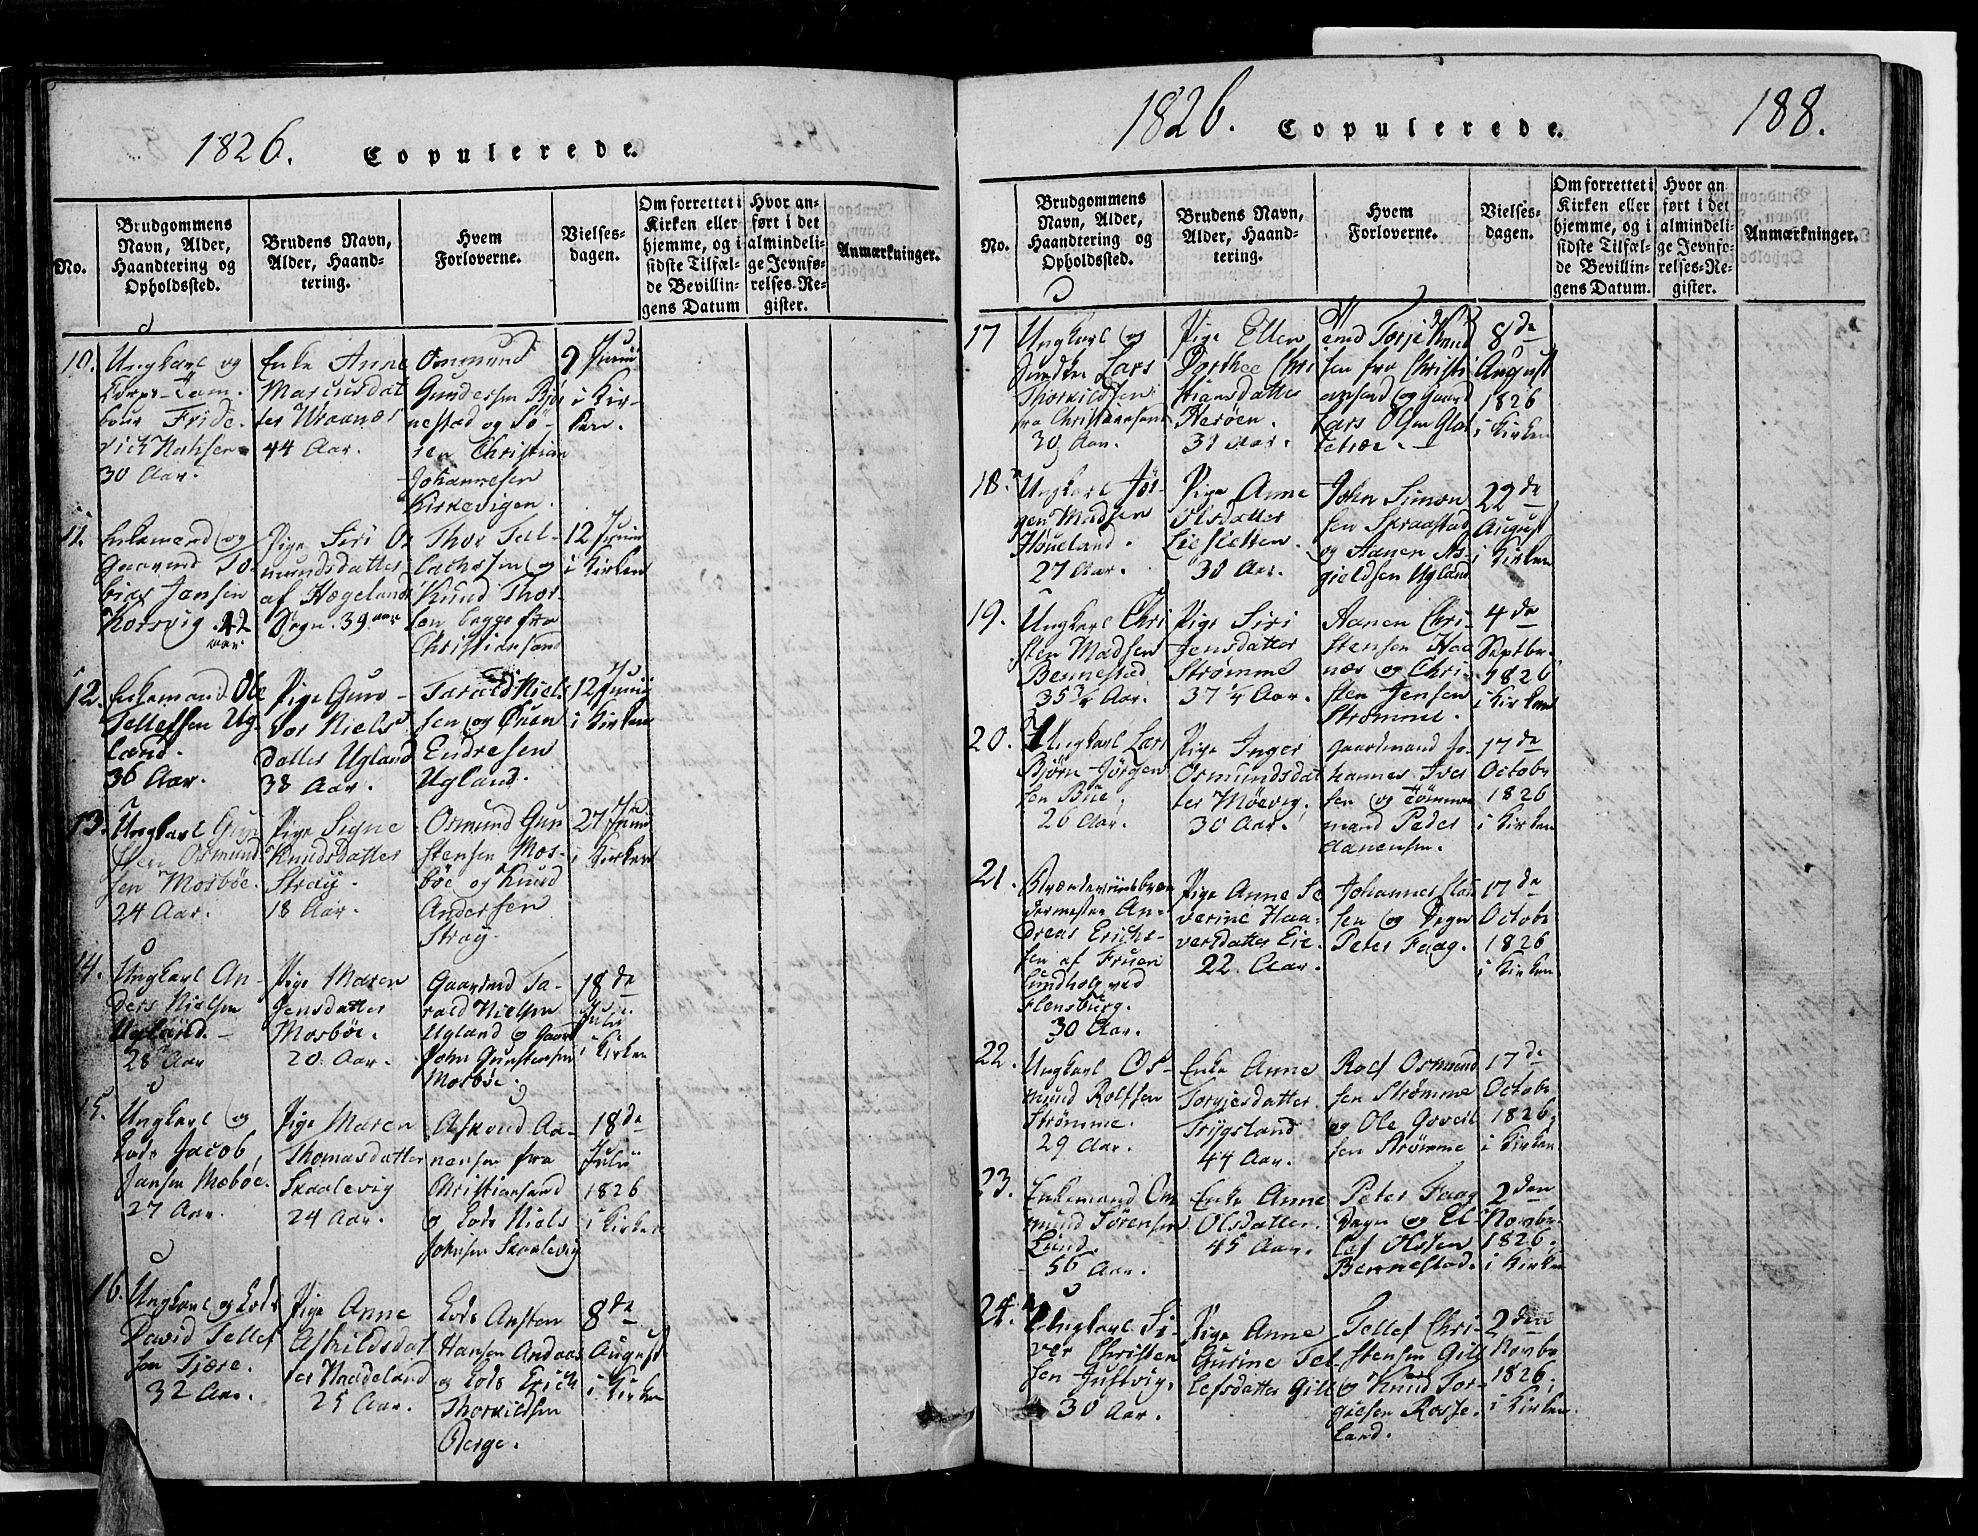 1826. Copulerede.
No.
Brudgommens Navn, Alder, Haandtering og Opholdssted.
Brudens Navn, Alder, Haandtering.
Hvem Forloverne.
Vielses-dagen.
Om forrettet i Kirken eller hjemme, og i sidste Tilfælde Bevillingens Datum
Hvor anført i det almindelige Jevnførelses-Register.
Anmærkninger.
10.
Ungkarl og
Corps-Tam-
bour Fride-
rich
30 Aar.
Enke Anne
Marcusdat
ter
44 Aar.
Osmund
Gundersen Bjør
nestad og Sö-
ren Christian
Johannesen
Kirkevigen.
2 Junii
i Kir-
ken.
11.
Enkemand og
Gaarmd To-
bias Jansen
Korsvig. 42
aar.
Pige Siri Os
mundsdatter
af Hægelands
Sogn. 39 aar
Thor Tell-
lachsen og
Knud Thor-
sen begge fra
Christiansand
12 Junii
i Kirken
12.
Enkemand Ole
Tellefsen Ug
land.
36 Aar.
Pige Gun-
vor Niels
datter Ugland
38 Aar.
Tarald Niel-
sen og
Endresen
Ugland.
12 Junii
i Kirken
13.
Ungkarl Gun
sten Osmund
sen Mosbøe.
24 Aar.
Pige Signe
Knudsdatter
Straÿ.
18 Aar.
Osmund Gun
stensen Mos-
bøe og Knud
Andersen
Straÿ.
27 Junii
i Kirken
14.
Ungkarl An-
ders Nielsen
Ugland.
28 Aar
Pige Maren
Jensdatter
Mosbøe.
20 Aar.
Gaarmd Ta-
rald Nielsen
Ugland og Gaard
John Gunstensen
Mosbøe.
18de
Julii
i Kirken
15.
Ungkarl og
Lods Jacob
Jansen Mebøe.
27 Aar.
Pige Maren
Thomasdatter
Skaalevig
24 Aar.
Askoud Aa-
nensen fra
Christiansand
og Lods Niels
Johnsen Skaalevig
18de
Julii
1826
i Kirken
16.
Ungkarl og Lods
David Tellef
sen Tjære.
32 Aar.
Pige Anne
Askildsdat
ter Nadeland
25 Aar.
Lods Ansten
Hansen Andaas
og Lods Erich
Thorkildsen
Berge.
8de
August
i Kirken
1826. Copulerede. 188.
No.
Brudgommens Navn, Alder, Haandtering og Opholdssted.
Brudens Navn, Alder, Haandtering.
Hvem Forloverne.
Vielses-dagen.
Om forrettet i Kirken eller hjemme, og i sidste Tilfælde Bevillingens Datum.
Hvor anført i det almindelige Jevnførelses-Register.
Anmærkninger.
17
Ungkarl og
Lars
Thorkildsen
fra Christiansand
30 Aar.
Pige Ellen
Dorthee Chri
stiansdatter
Herøen.
30 Aar.
Torje Knud
sen fra Christi
ansand og Gaard
Lars Olsen Glat
tetræe.
8de
August
1826
i Kirken
18.
Ungkarl Jör-
gen Madsen
Höueland.
27 Aar.
Pige Anne
Olsdatter
Liesletten.
30 Aar.
John Simon
sen Skraastad
og Aanen As-
gieldsen Ugland
22de
August
i Kirken
19.
Ungkarl Chri
sten Madsen
Bennestad
35 1/4 Aar.
Pige Siri
Jensdatter
Strömme
37 1/4 Aar.
Aanen Chri-
stensen Haa
næs og Chri-
sten Jensen
Strömme.
4de
Septbr.
1826
i Kirken
20.
Ungkarl Lars
Bjørn Jörgen
sen Bue.
26 Aar.
Pige Inger
Osmundsdat
ter Möevig.
30 Aar.
Gaardmand Jo-
hannes Iver
sen og Tömmer
mand Peder
Aanensen.
17de
Octobr
1826
i Kirken
21.
dermester An-
dreas Erich-
sen af Fruen
Lundholz ved
Flensburg.
30 Aar.
Pige Anne Se
verine Haa-
versdatter Eie.
22 Aar.
Johannes
sen og Degn
Peter Faag.
17de
Octobr
1826
i Kirken
22.
Ungkarl Os-
mund Rolfsen
Strømme.
29 Aar.
Enke Anne
Torjesdatter
Trijgsland
44 Aar.
Rolf Osmund
sen Strømme
og Ole
sen Strømme
17de
Octobr
1826.
i Kirken
23.
Enkemand Os
mund Sörensen
Lund.
56 Aar.
Enke Anne
Olsdatter.
45 Aar.
Peter Faag
Degn og El-
lef Olsen
Bennestad.
2den
Novbr.
1826.
i Kirken
24.
Ungkarl Si-
ver Christen
sen Justvig.
30 Aar.
Pige Anne
Gurine Tel
lefsdatter Gill
Tellef Chri-
stensen Gill
og Knud Tor-
giusen Rosse-
land.
2den
Novbr
1826.
i Kirken.